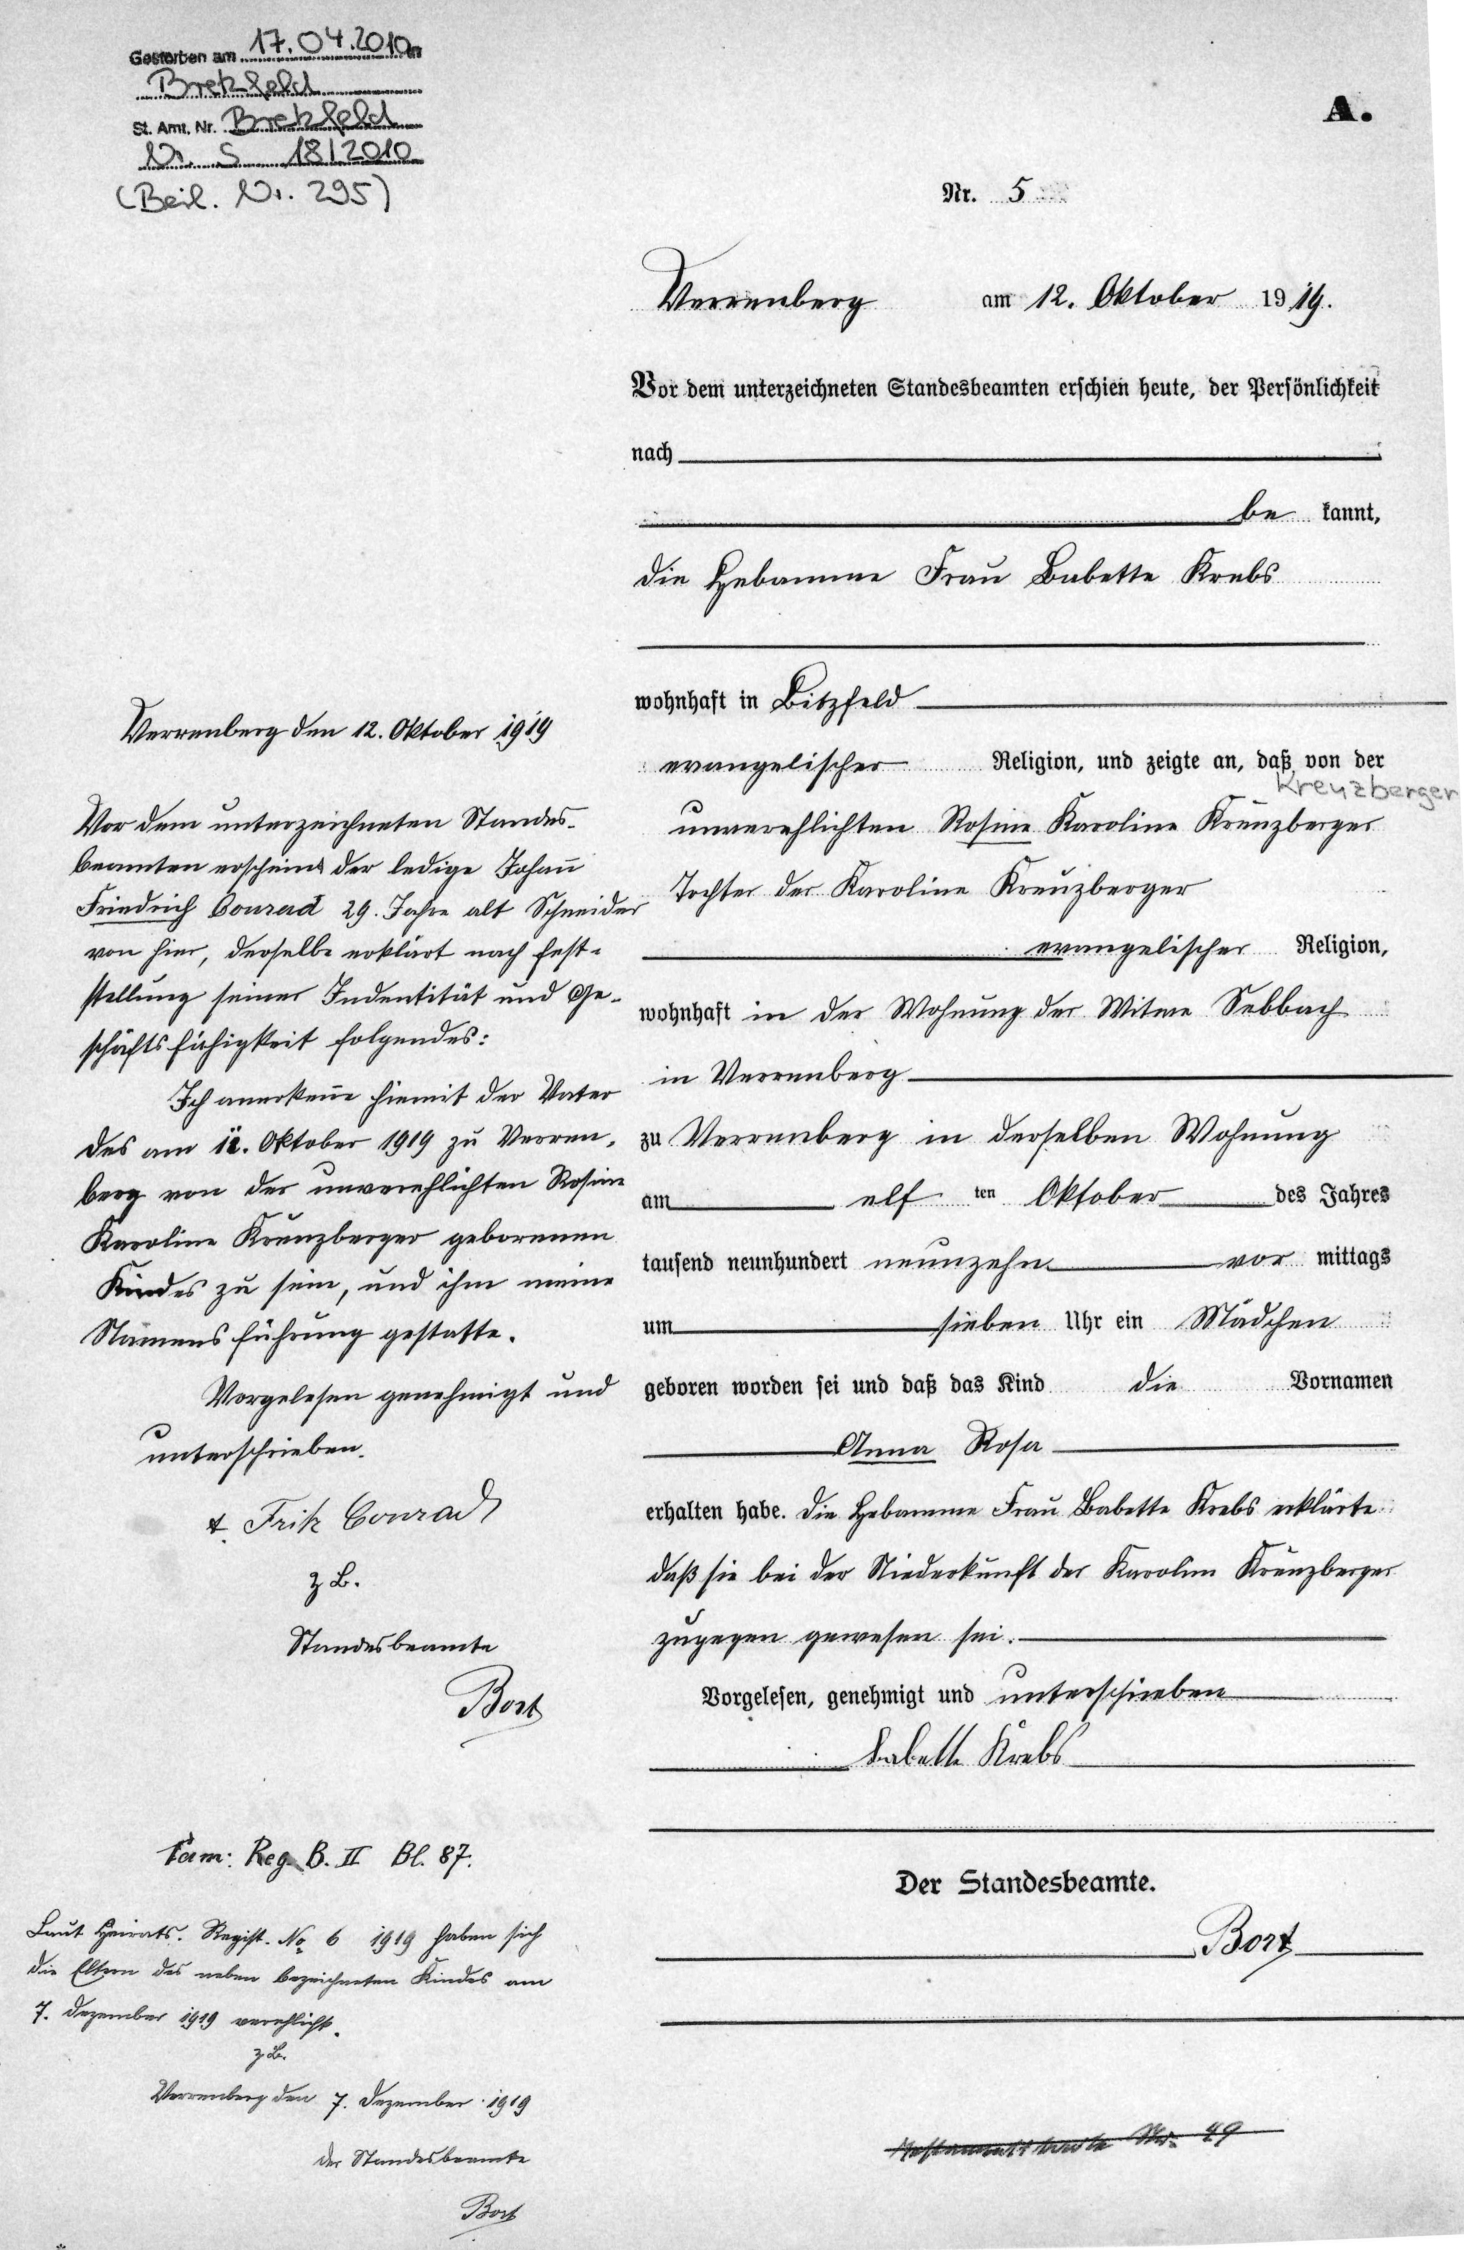 Gestorben am 17.04.2010 in
Bretzfeld
St. Amt. Nr. Bretzfeld
Nr. S 18/2010
(Beil. Nr. 295)
A.
Nr. 5
Verrenberg am 12. Oktober 1919.
Vor dem unterzeichneten Standesbeamten erschien heute, der Persönlichkeit
nach
be kannt,
die Hebamme Frau Babette Krebs
wohnhaft in Bitzfeld
evangelischer Religion, und zeigte an, daß von der
Kreuzberger
unverehlichten Rosine Karoline Kreuzberger
Tochter der Karoline Kreuzberger
evangelischer Religion,
wohnhaft in der Wohnung der Witwe Sebbach
in Verrenberg
zu Verrenberg in derselben Wohnung
am elf ten Oktober des Jahres
tausend neunhundert neunzehn vor mittags
um sieben Uhr ein Mädchen
geboren worden sei und daß das Kind die Vornamen
Anna Rosa
erhalten habe. Die Hebamme Frau Babette Krebs erklärte
daß sie bei der Niederkunft der Karolin Kreuzberger
zugegen gewesen sei.
Vorgelesen, genehmigt und unterschrieben
Babette Krebs
Der Standesbeamte.
Bort
Nr. 49
Verrenberg den 12. Oktober 1919
Vor dem unterzeichneten Standes-
beamten erscheint der ledige Johann
Friedrich Conrad 29. Jahre alt Schneider
von hier, derselbe erklärt nach Fest-
stellung seiner Indentität und Ge-
schäftsfähigkeit folgendes:
Ich anerkenne hiemit der Vater
des am 11. Oktober 1919 zu Verren-
berg von der unverehlichten Rosine
Karoline Kreuzberger geborenen
Kindes zu sein, und ihm meine
Namensführung gestatte.
Vorgelesen genehmigt und
unterschrieben.
Fritz Conrad
z B.
Standesbeamte
Bort
Fam: Reg. B. II Bl. 87.
Laut Heirats. Regist. No 6 1919 haben sich
die Eltern des neben bezeichneten Kindes am
7. Dezember 1919 verehlicht.
z B.
Verrenberg den 7. Dezember 1919
der Standesbeamte
Bort